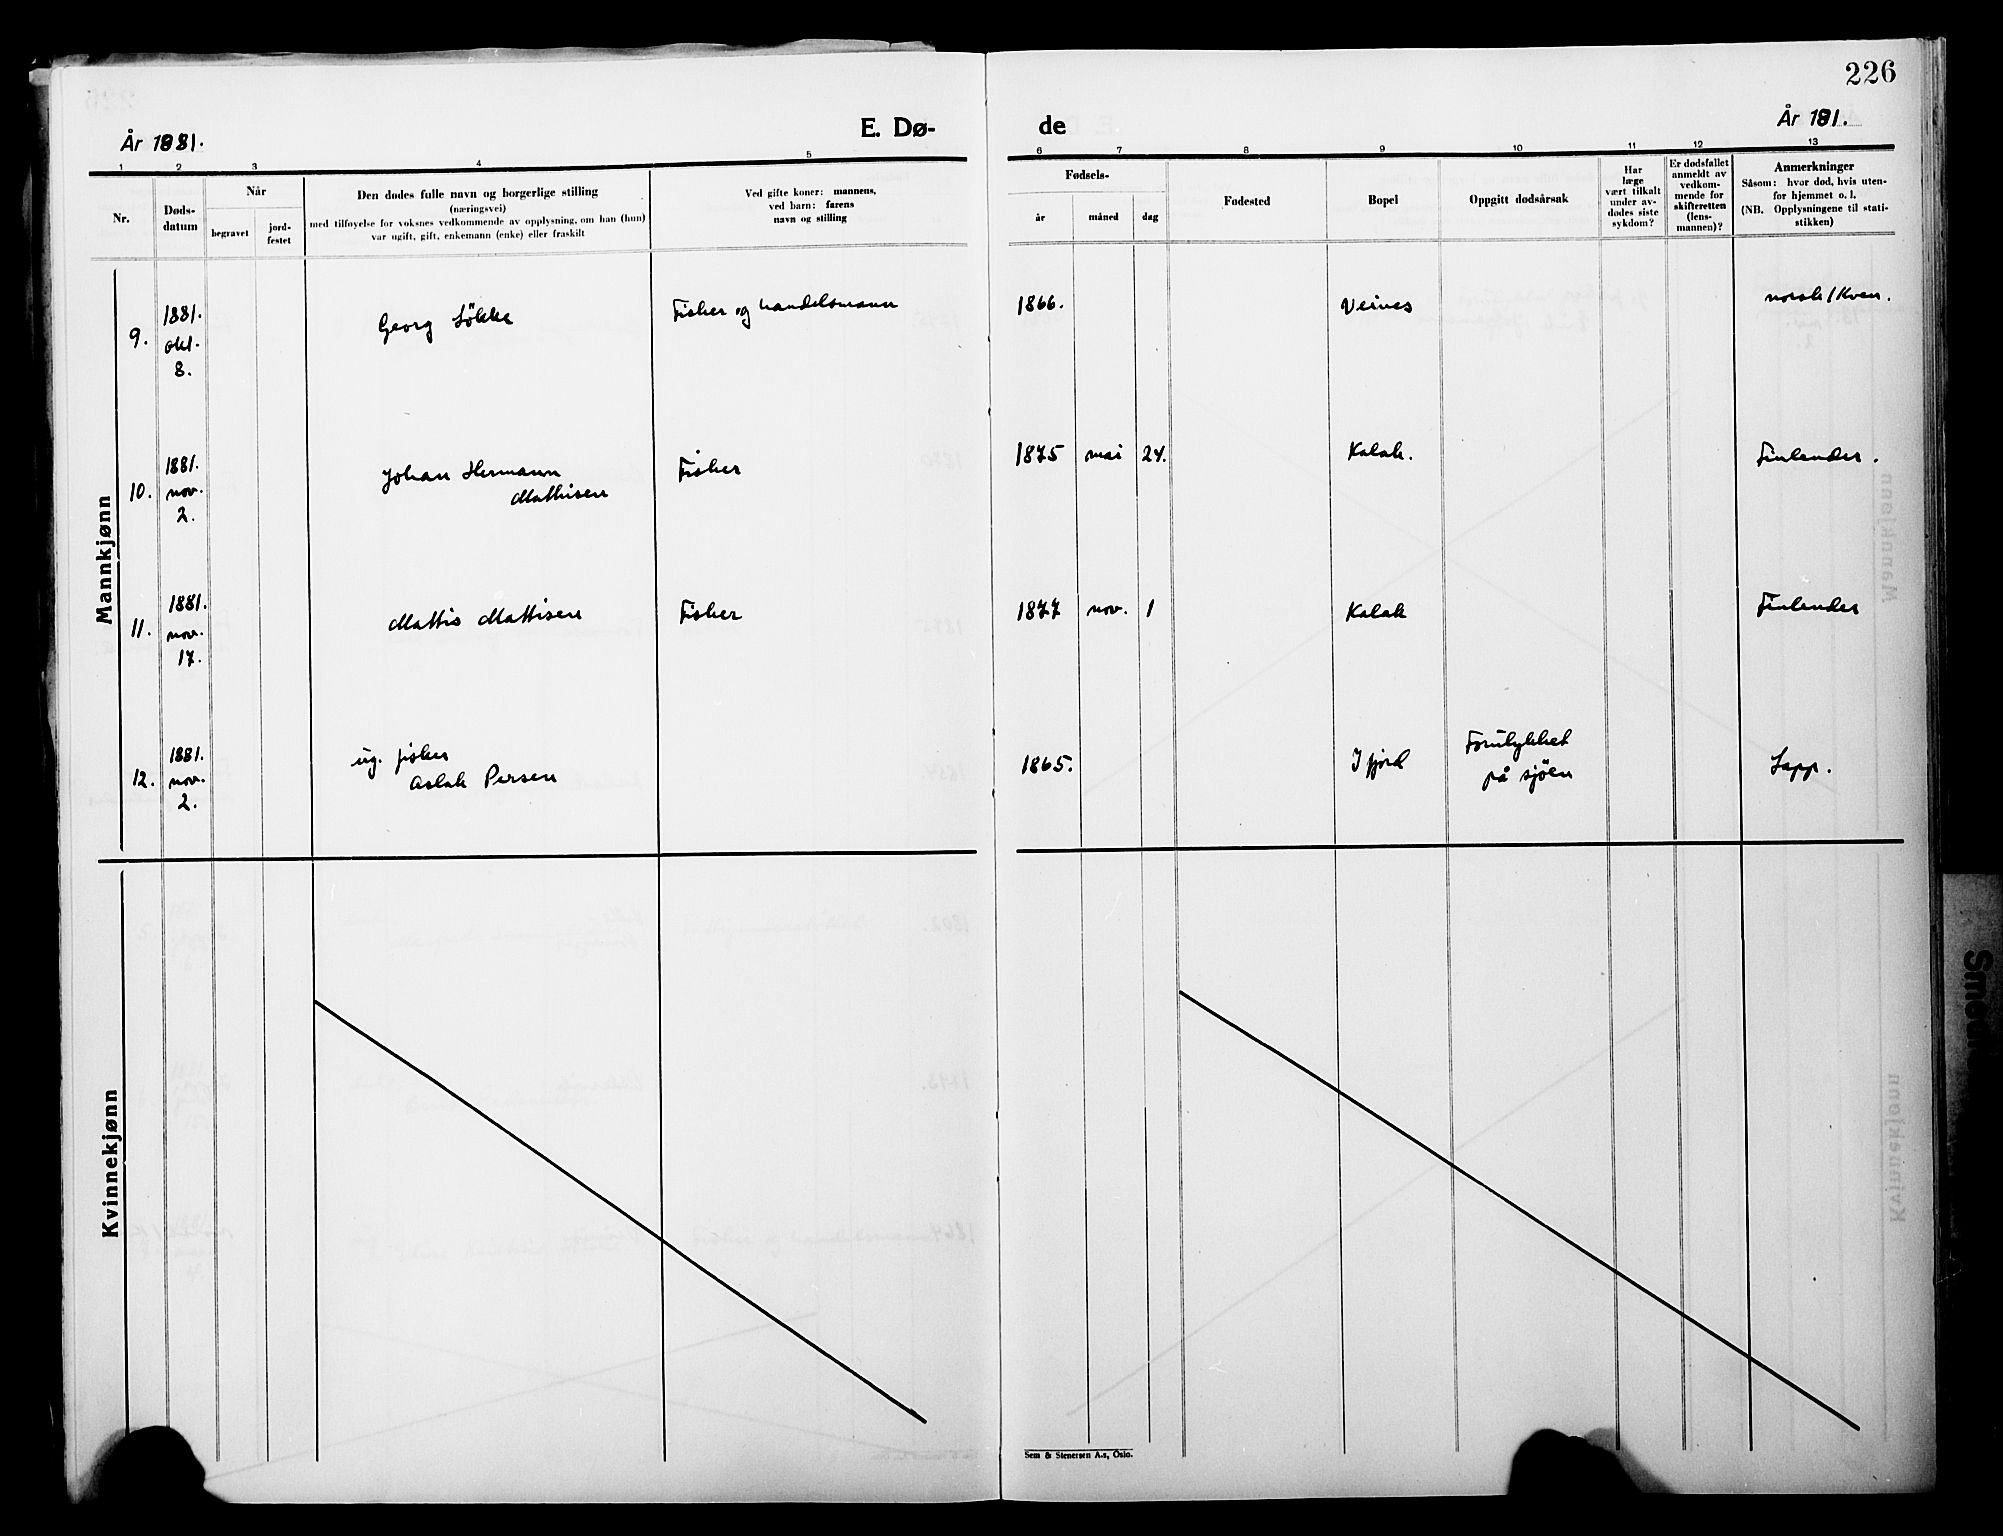 226
År 1881.
E. Dø-
de
År 181.
1 2 3 4 5
6 7 8 9 10 11 12 13
Nr.
Døds-
datum
Når
begravet
jord-
festet
Den dødes fulle navn og borgerlige stilling
(næringsvei)
med tilføyelse for voksnes vedkommende av opplysning, om han (hun)
var ugift, gift, enkemann (enke) eller fraskilt
Ved gifte koner: mannens,
ved barn: farens
navn og stilling
Fødsels-
år måned dag
Fødested
Bopel
Oppgitt dødsårsak
Har
læge
vært tilkalt
under av-
dødes siste
sykdom?
Er dødsfallet
anmeldt av
vedkom-
mende for
skifteretten
(lens-
mannen)?
Anmerkninger
Såsom: hvor død, hvis uten-
for hjemmet o. l.
(NB. Opplysningene til stati-
stikken)
Mannkjønn
9.
1881.
okt.
8.
Georg Løkke
Fisker og handelsmann
1866.
Veines
norsk/Kven.
10.
1881.
nov.
2.
Johan Hermann
Mathisen
Fisker
1875 mai 24.
Kalak.
Finlender.
11.
1881.
nov.
17.
Mattis Mattisen
Fisker
1877 nov. 1
Kalak
Finlender
12.
1881.
nov.
2.
ug. fisker
Aslak Persen
1865.
Ifjord
Forulykket
på sjöen
Lapp.
Kvinnekjønn
Sem & Stenersen A.s, Oslo.